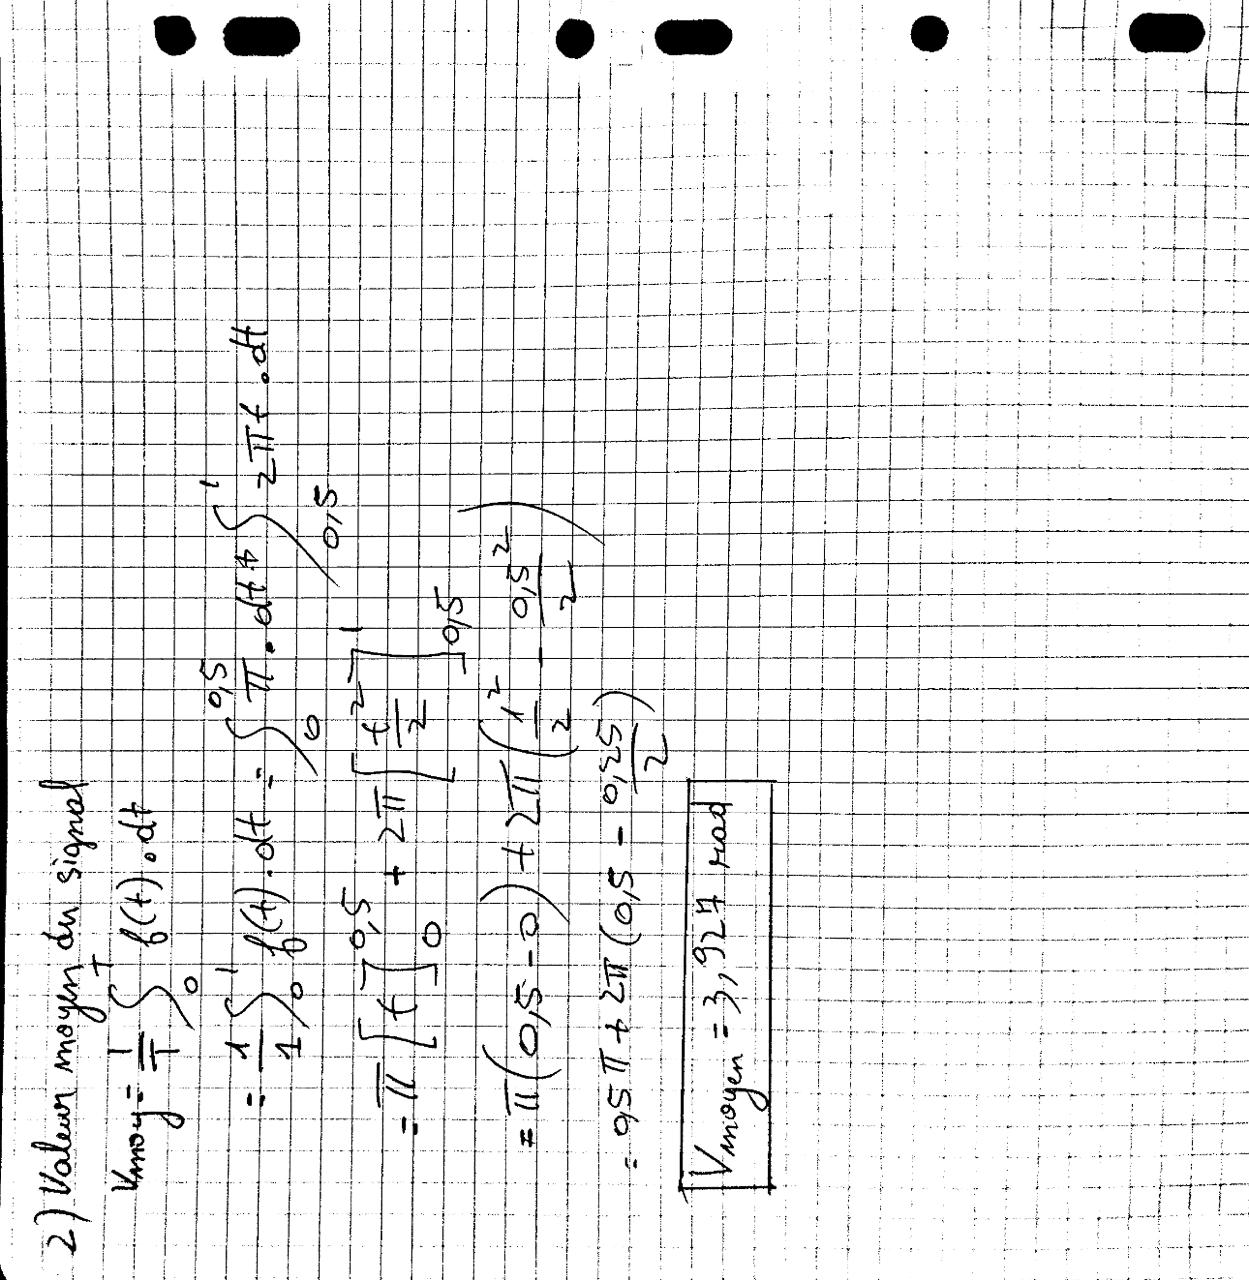 2) Valeur moyen du signal
Vmoy = 1/T ∫₀ᵀ f(t).dt
= 1/1 ∫₀¹ f(t).dt = ∫₀^0,5 π.dt + ∫_0,5^1 2πt.dt
= π [t]₀^0,5 + 2π [t²/2]_0,5^1
= π(0,5-0) + 2π (1²/2 - 0,5²/2)
= 0,5π + 2π (0,5 - 0,25/2)
Vmoyen = 3,927 rad